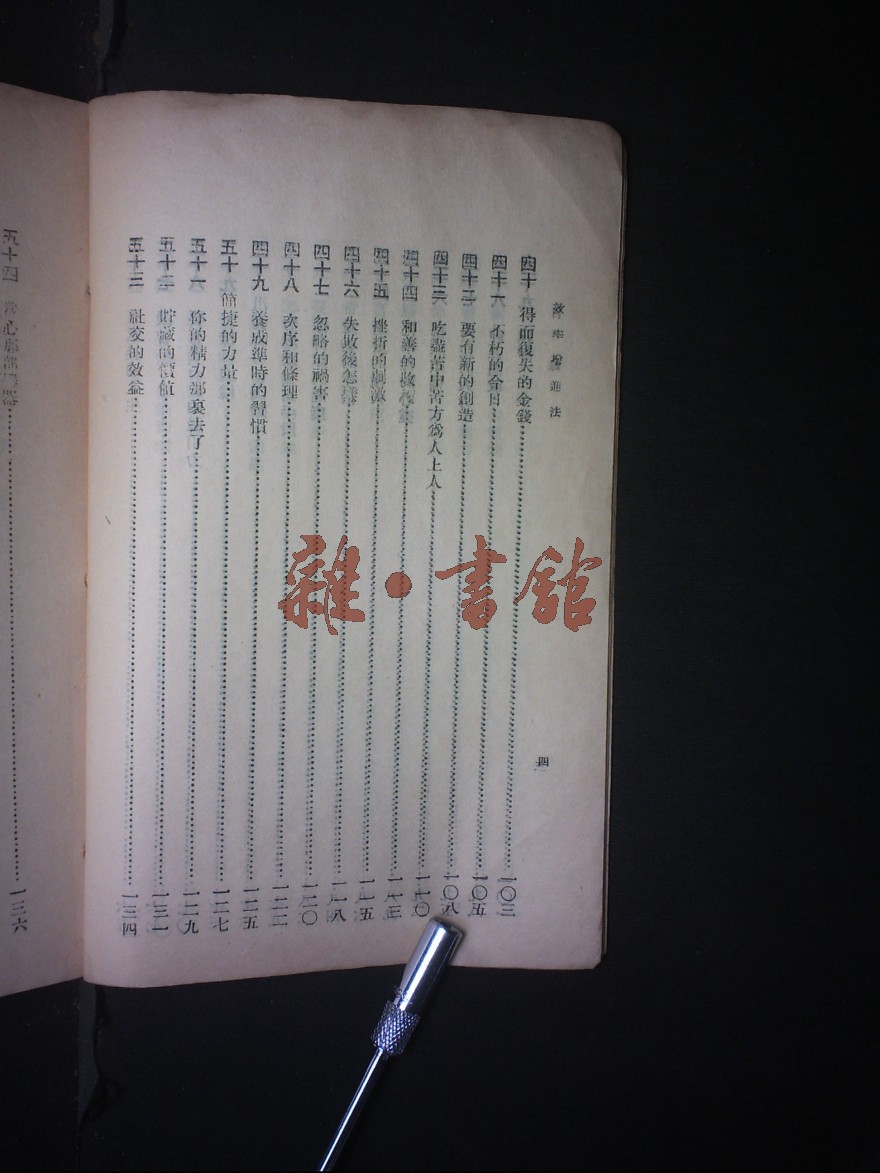 效率增進法
四
四十 得而復失的金錢 一〇三
四十一 不朽的今日 一〇五
四十二 要有新的創造 一〇八
四十三 吃盡苦中苦方爲人上人 一一〇
四十四 和善的 一一三
四十五 挫折的刺激 一一五
四十六 失敗後怎樣 一一八
四十七 忽略的禍害 一二〇
四十八 次序和條理 一二二
四十九 養成準時的習慣 一二五
五十 簡捷的力量 一二七
五十一 你的精力那裏去了 一二九
五十二 貯藏的價值 一三一
五十三 社交的效益 一三四
五十四 一三六
雜·書館